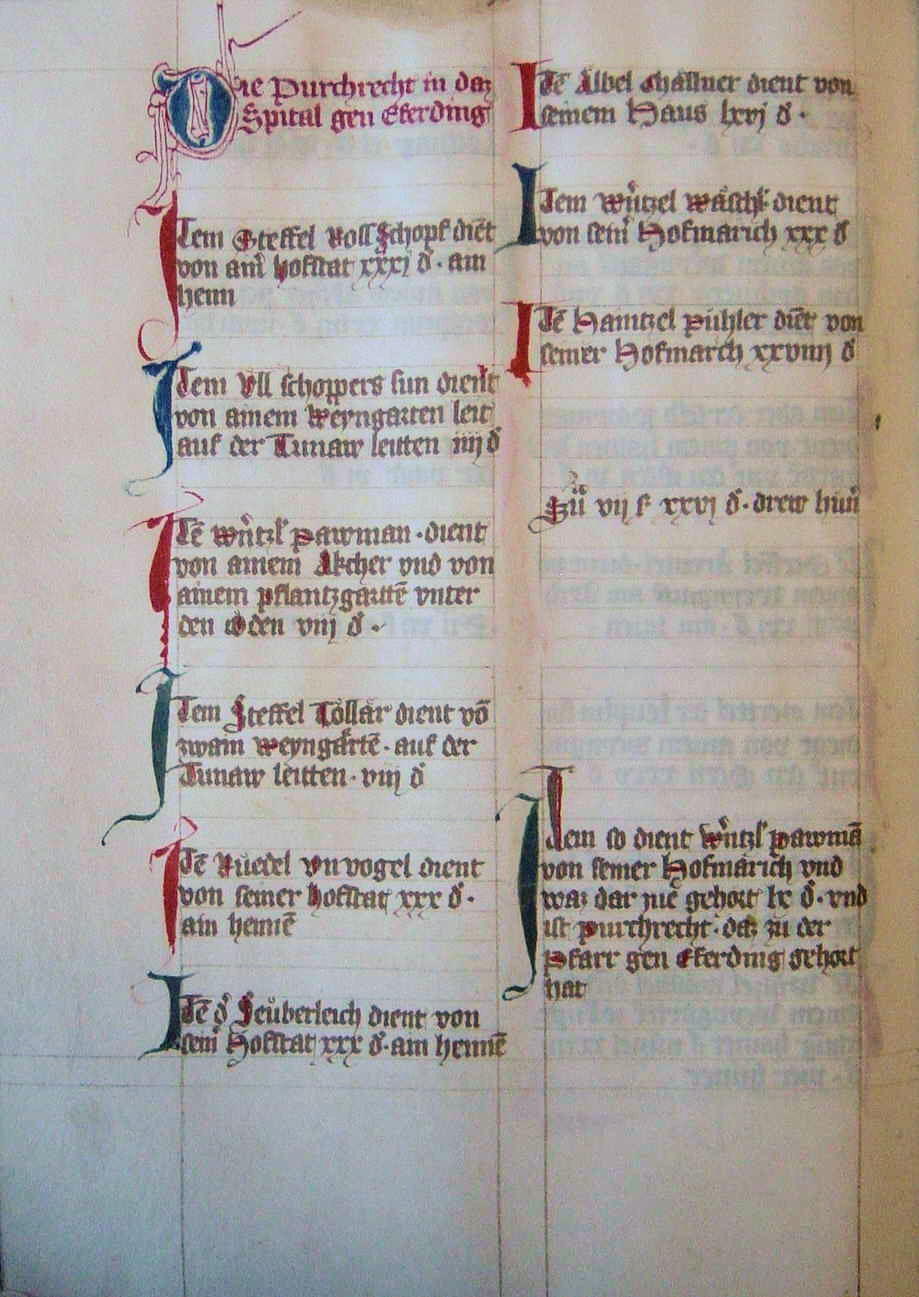 Die Purchrecht in daz
Spital gen Eferding
Item Steffel Rollschopf diēt
von aim̄ hofstat xxxj đ · am
henn
Item Ull schoppers sun dient
von ainem Weyngarten leit
auf der Tunaw leitten iiij đ
Itē Wn̄tzl Pawman · dient
von ainem Akcher vnd von
ainem pflantzgartē vnter
den Oden viij đ ·
Item Steffel Tollar dient vō
zwain weyngartē · auf der
Tunaw leitten · viij đ
Itē Ruedel Vnvogel dient
von seiner hofstat xxx đ ·
ain hennē
Itē đ Seuberleich dient von
sein̄ Hofstat xxx đ · am hennē
Itē Albel dient von
seinem Haus lxvj đ ·
Item Wn̄tzel Wäschl dient
von sein̄ Hofmarich xxx đ
Itē Haintzel Pühler diēt von
seiner Hofmarch xxviiij đ
Sū vij ẜ xxvj đ · drew hūn̄
Item so dient Wn̄tzl Pawmā
von seiner Hofmarich vnd
waz dar zuē gehort lx đ · vnd
ist purchrecht · daz zu der
Pfarr gen Eferding gehort
hat